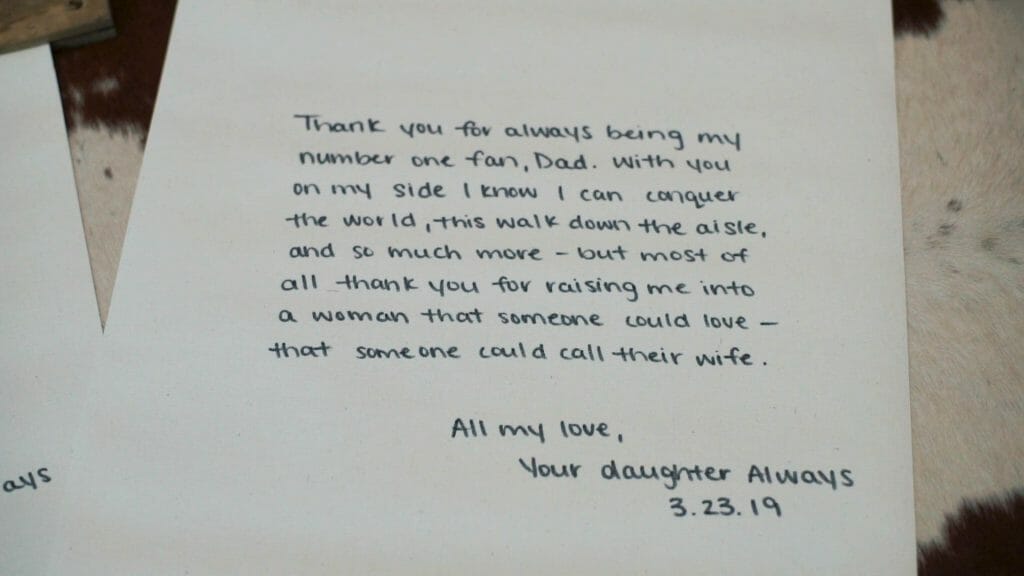 Thank you for always being my
number one fan, Dad. With you
on my side I know I can conquer
the world, this walk down the aisle,
and so much more - but most of
all thank you for raising me into
a woman that someone could love -
that someone could call their wife.
All my love,
Your daughter Always
3.23.19
ays